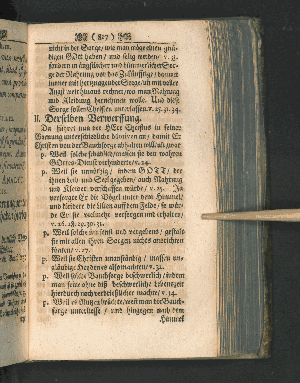 ( 817 )
nicht in der Sorge / wie man möge einen gnä-
digen GOtt haben / und selig werden / v. 33.
sondern in ängstlicher und kümmerlicher Sor-
ge der Nahrung vor das Zukünfftige / da man
immer mit herznagender Sorge / ab mit voller
Angst
und Kleidung hernehmen wolle. Und diese
Sorge sollen Christen unterlassen / v. 25. 31. 34.
II. Derselben Verwerffung.
Da führet nun der HErr Christus in seiner
Warnung unterschiedliche an / damit Er
Christen von der Bauchsorge abhalten will / als / zwar
p. Weil solche schändlich / massen sie den wahren
GOttes-Dienst verhindert / v. 24.
p. Weil sie unnöthig / indem GOTT / der
ihnen Leib und Seel gegeben / auch Nahrung
und Kleider verschaffen würde / v. 25. Ja
versorge Er die Vögel unter dem Himmel /
und kleidete die Lilien auf dem Felde / so wür-
de Er sie vielmehr versorgen und erhalten /
v. 26. 28. 29. 30. 31.
p. Weil solche umsonst und vergebens / gestalt
sie mit allen ihren Sorgen nichts ausrichten
könten / v. 27.
p. Weil sie Christen unanständig / massen un-
gläubige Heyden es also machten / v. 32.
p. Weil solche Bauchsorge beschwerlich / indem
man seine ohne diß beschwerliche Lebenszeit
hierdurch noch verdrießlicher machte / v. 34.
p. Weil es Nutzen brächte / wenn man die Bauch-
sorge unterliesse / und hingegen nach dem
Himmel